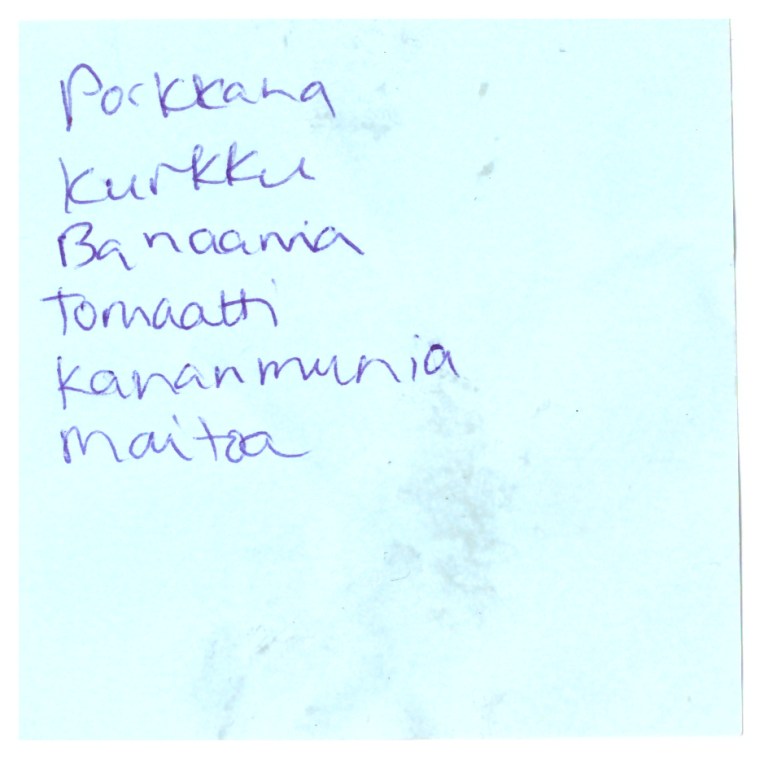 Porkkana
Kurkku
Banaania
Tomaatti
Kananmunia
maitoa